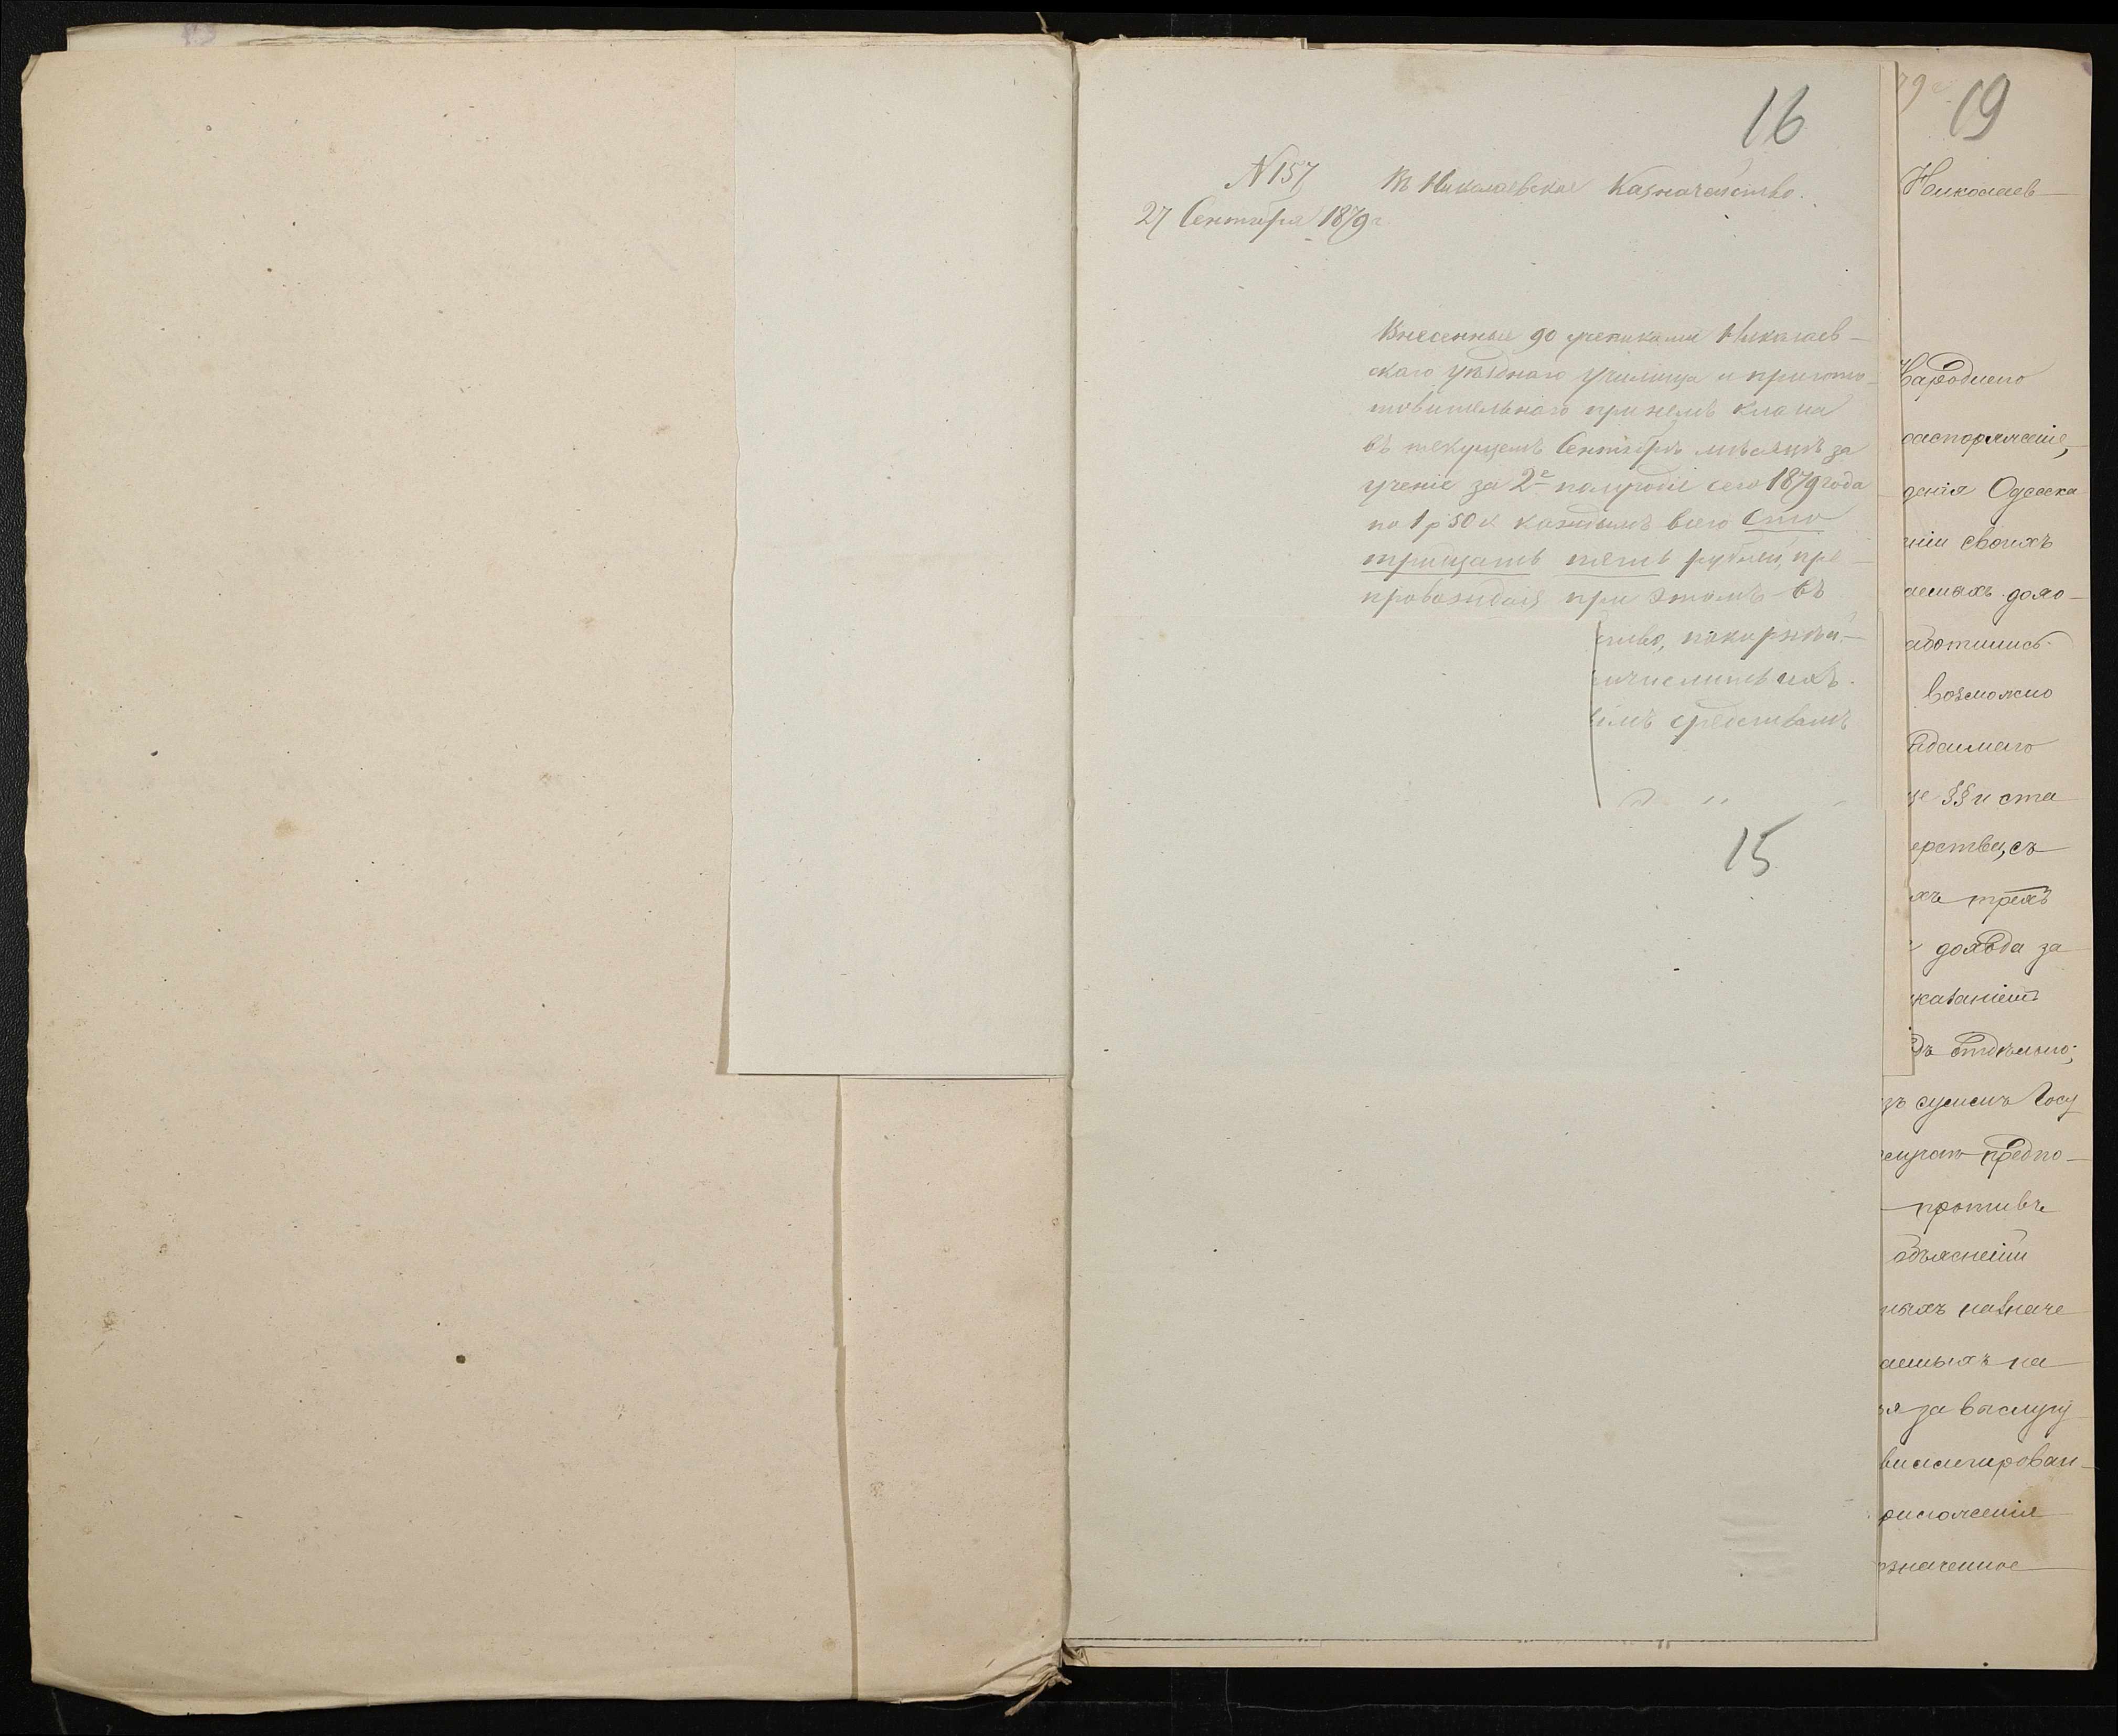 16
N 157
27 Сентября 1879 г.
Въ Николаевское Казначейство.
Внесенныя 90 учениками Николаев-
скаго уѣзднаго училища и пригото-
товительнаго при немъ класса
въ текущемъ Сентябрѣ мѣсяцѣ за
ученіе за 2е полугодіе сего 1879 года
по 1 р 50 к каждымъ всего Сто
тридцать пять рублей, пре-
провождая при этомъ въ
ство, покорнѣй-
числить ихъ
имъ средствамъ
15
19
Николаев-
Народнаго
распоряженіе,
денія Одесска
ніи своихъ
аемыхъ дохо-
аботились
возможно
ждаемаго
§§ и ста
ерства, съ
хъ трехъ
дохода за
казаніемъ
отдѣльно;
зъ суммъ Госу
предпо-
противъ
объясненіи
ныхъ назначе
аемыхъ на
ія за выслугу
ассигнован-
рисложенія
означенное